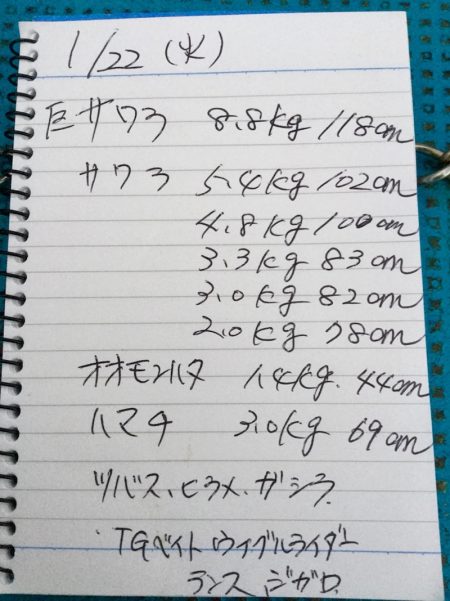 1/22 (水)
巨サワラ 8.8kg 118cm
サワラ 5.4kg 102cm
4.8kg 100cm
3.3kg 83cm
3.0kg 82cm
2.0kg 78cm
オオモンハタ 1.4kg. 44cm
ハマチ 3.0kg 69cm
ツバス、ヒラメ、ガシラ.
TGベイト ウイグルライダー
ランス ジガロ.